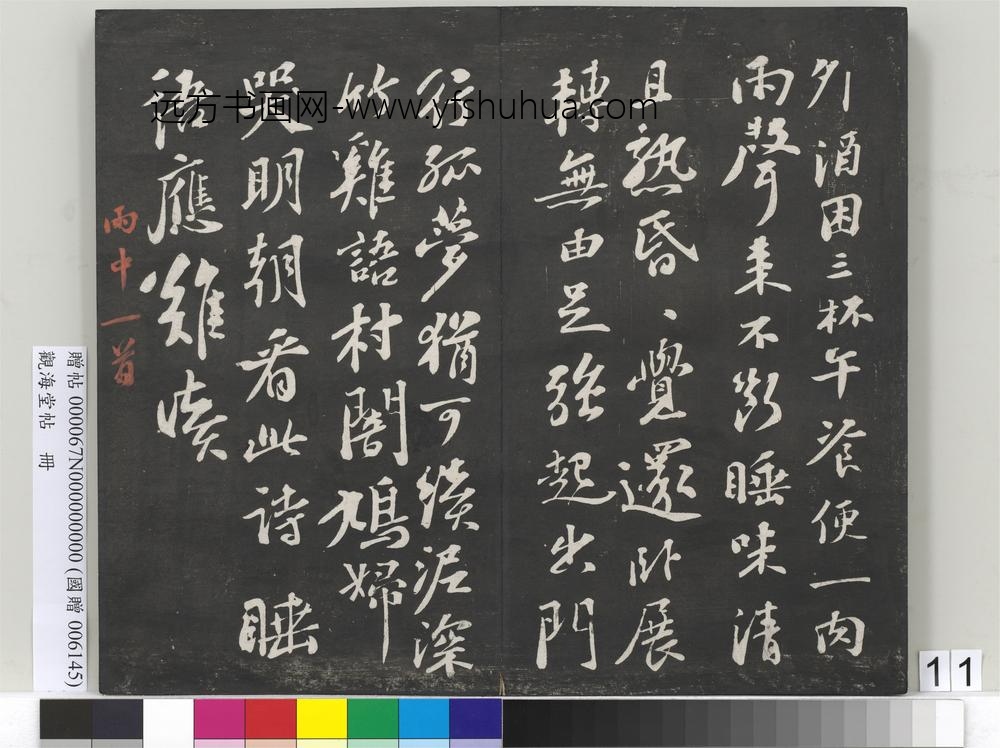 夘酒困三杯午飡便一肉
雨聲来不斷睡味清
且熟昏、覺還卧展
轉無由足强起出門
行孤夢猶可續泥深
竹雞語村闇鳩婦
哭明朝看此詩睡
語應難讀
雨中一首
远方书画网-www.yfshuhua.com
贈帖 000067N000000000 (國贈 006145)
觀海堂帖 冊
11